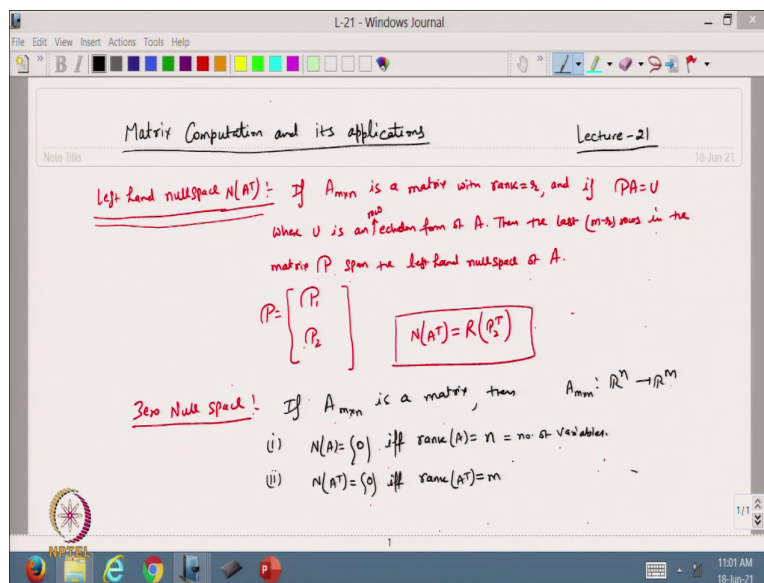 L-21 - Windows Journal
File Edit View Insert Actions Tools Help
B I
Matrix Computation and its applications
Lecture-21
Note Title
18-Jun-21
Left hand nullspace N(A^T) :- If A_{m×n} is a matrix with rank=r, and if PA=U
where U is an row echelon form of A. Then the last (m-r) rows in the
matrix P span the left hand nullspace of A.
P = [P_1
P_2]
N(A^T) = R(P_2^T)
Zero Null space :- If A_{m×n} is a matrix, then A_{m×n} : R^n → R^m
(i) N(A) = {0} iff rank(A) = n = no. of variables.
(ii) N(A^T) = {0} iff rank(A^T) = m
NPTEL
1/1
1
11:01 AM
18-Jun-21